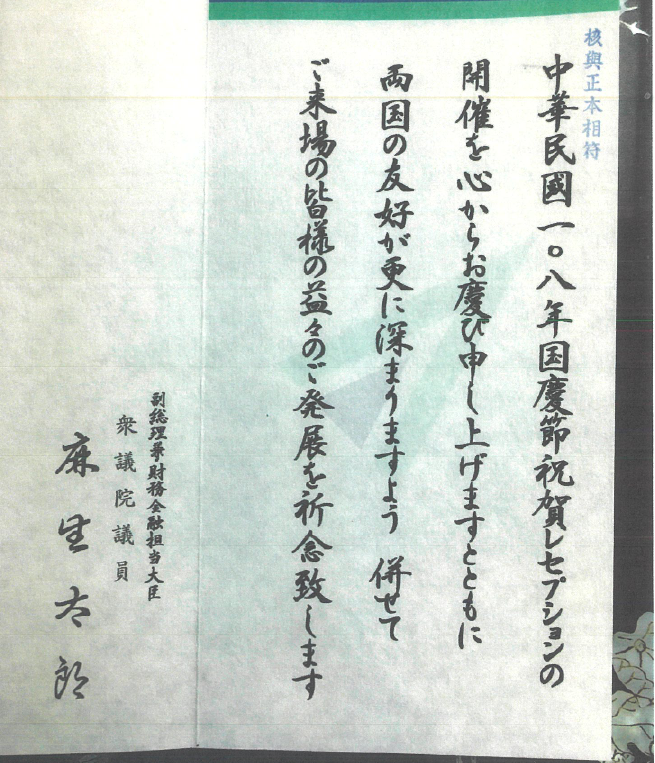 核與正本相符
中華民國一〇八年国慶節祝賀レセプションの
開催を心からお慶び申し上げますとともに
両国の友好が更に深まりますよう 併せて
ご来場の皆様の益々のご発展を祈念致します
副総理兼財務金融担当大臣
衆議院議員
麻生太郎